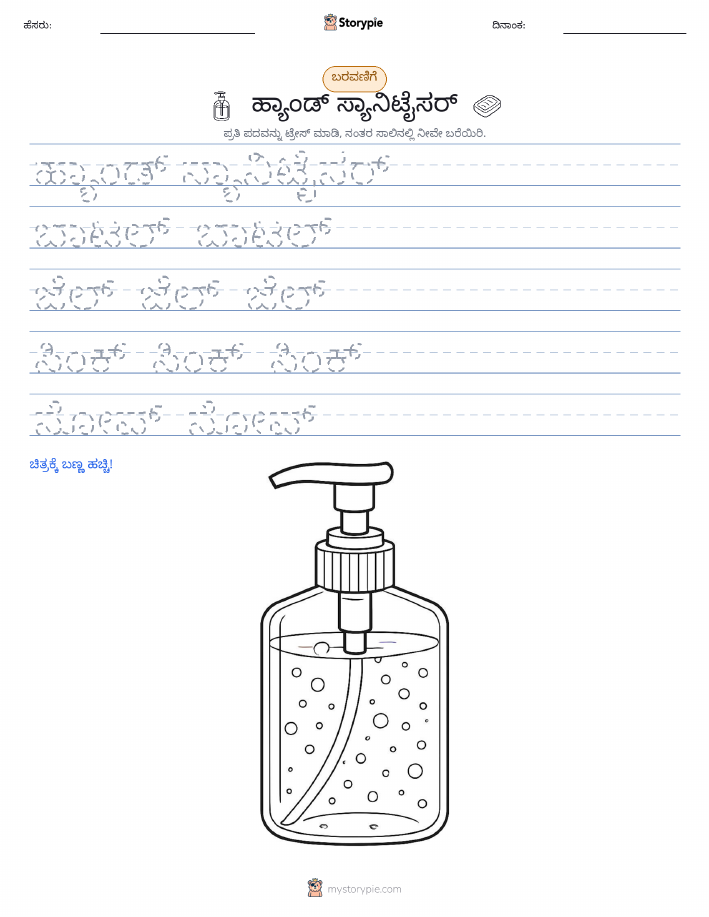 ಹೆಸರು:
Storypie
ದಿನಾಂಕ:
ಬರವಣಿಗೆ
ಹ್ಯಾಂಡ್ ಸ್ಯಾನಿಟೈಸರ್
ಪ್ರತಿ ಪದವನ್ನು ಟ್ರೇಸ್ ಮಾಡಿ, ನಂತರ ಸಾಲಿನಲ್ಲಿ ನೀವೇ ಬರೆಯಿರಿ.
ಹ್ಯಾಂಡ್ ಸ್ಯಾನಿಟೈಸರ್
ಬಾಟಲ್ ಬಾಟಲ್
ಜೆಲ್ ಜೆಲ್ ಜೆಲ್
ಸಿಂಕ್ ಸಿಂಕ್ ಸಿಂಕ್
ಸೋಪ್ ಸೋಪ್
ಚಿತ್ರಕ್ಕೆ ಬಣ್ಣ ಹಚ್ಚಿ!
mystorypie.com